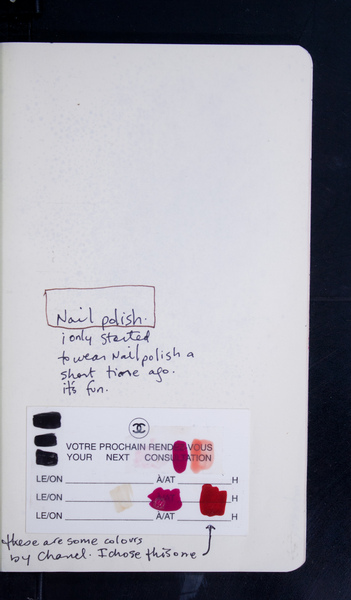 Nail polish.
i only started
to wear Nail polish a
short time ago.
it's fun.
VOTRE PROCHAIN RENDEZ-VOUS
YOUR NEXT CONSULTATION
LE/ON À/AT H
LE/ON À/AT H
LE/ON À/AT H
these are some colours
by Chanel. I chose this one